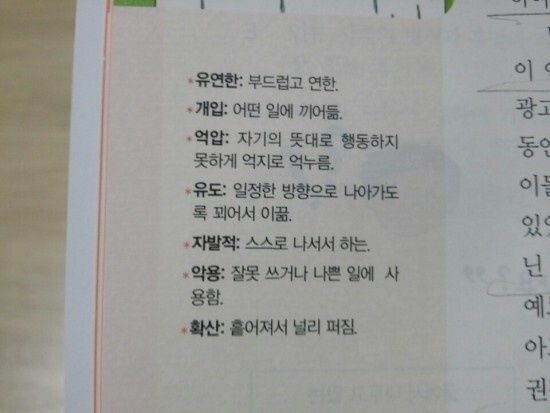 *유연한: 부드럽고 연한.
*개입: 어떤 일에 끼어듦.
*억압: 자기의 뜻대로 행동하지
못하게 억지로 억누름.
*유도: 일정한 방향으로 나아가도
록 꾀어서 이끎.
*자발적: 스스로 나서서 하는.
*악용: 잘못 쓰거나 나쁜 일에 사
용함.
*확산: 흩어져서 널리 퍼짐.
이
광고
동안
이들
있었
닌
예
아
권